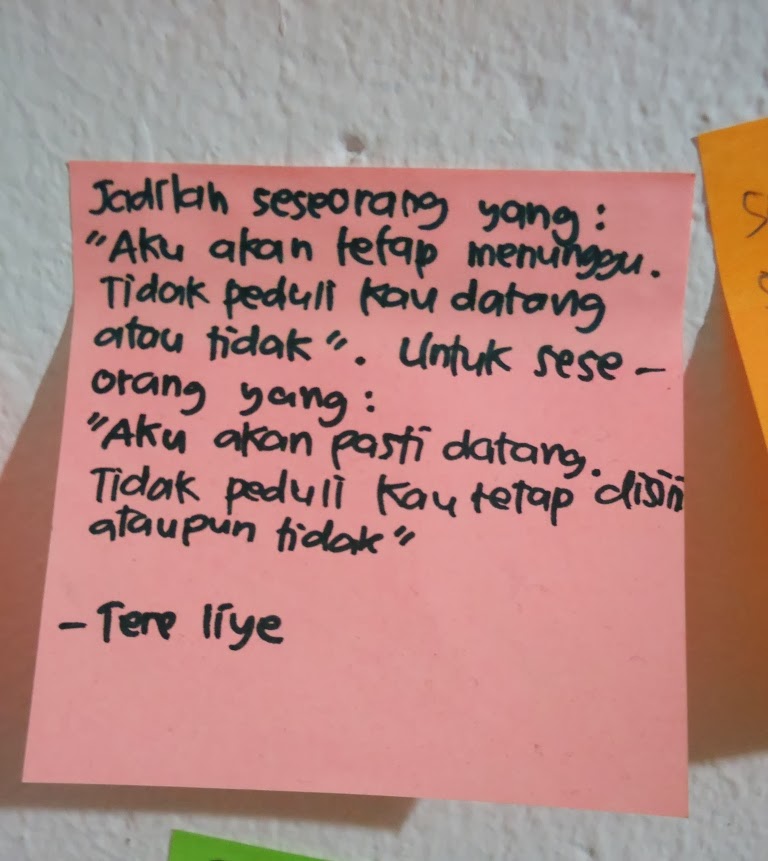 Jadilah seseorang yang :
"Aku akan tetap menunggu.
Tidak peduli kau datang
atau tidak". Untuk sese-
orang yang :
"Aku akan pasti datang.
Tidak peduli kau tetap disini
ataupun tidak"
- Tere liye